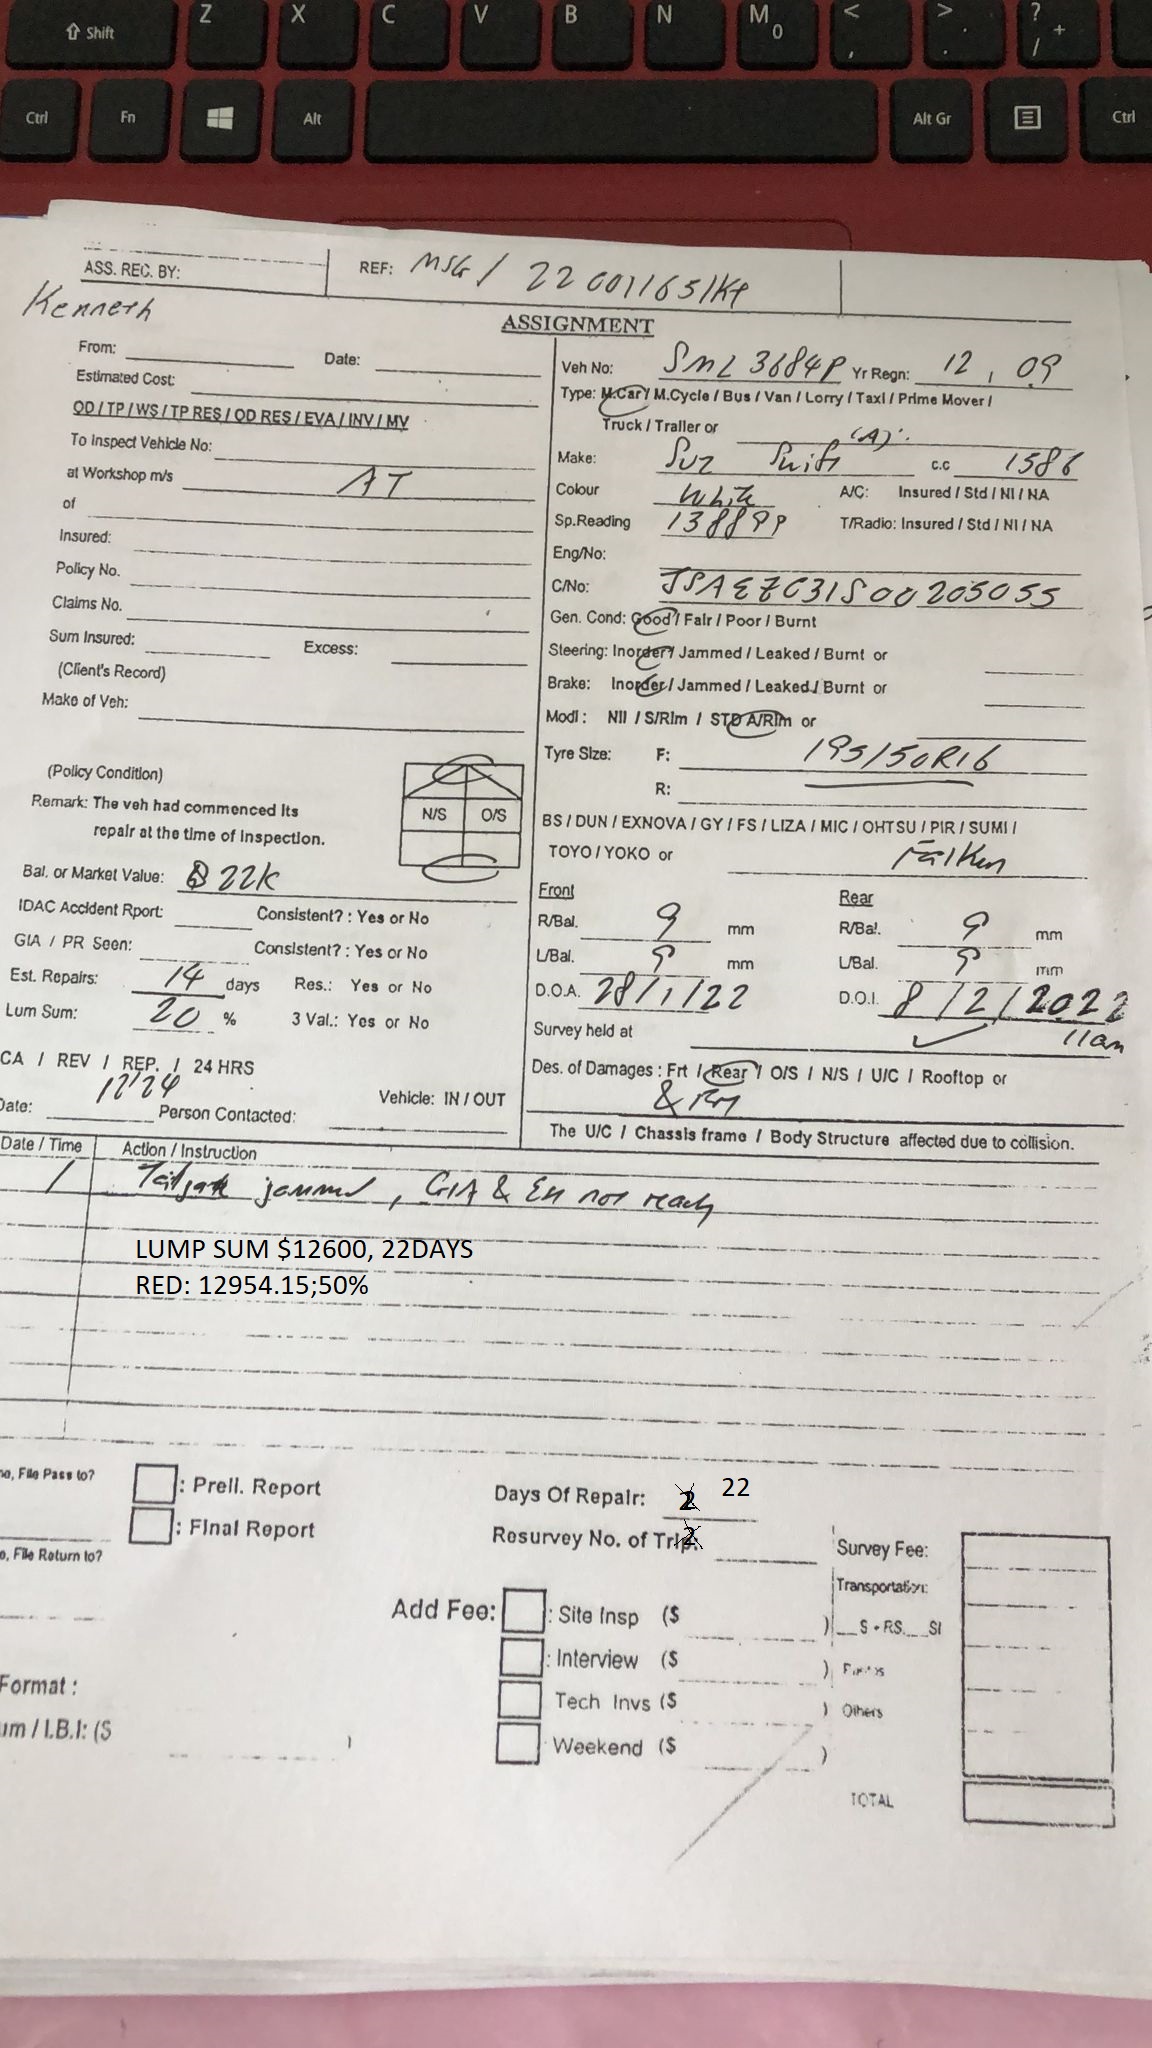 Shift Z X C V B N M 0 < , > . ? / +
Ctrl Fn Alt Alt Gr Ctrl
ASS. REC. BY: REF: MSG / 22001165/K4
Kenneth
ASSIGNMENT
From: Date:
Estimated Cost:
OD / TP / WS / TP RES / OD RES / EVA / INV / MV
To Inspect Vehicle No:
at Workshop m/s AT
of
Insured:
Policy No.
Claims No.
Sum Insured: Excess:
(Client's Record)
Make of Veh:
(Policy Condition)
Remark: The veh had commenced its
repair at the time of inspection.
N/S O/S
Bal. or Market Value: $ 22K
IDAC Accident Rport: Consistent? : Yes or No
GIA / PR Seen: Consistent? : Yes or No
Est. Repairs: 14 days Res.: Yes or No
Lum Sum: 20 % 3 Val.: Yes or No
CA / REV / REP. / 24 HRS
12'24
Date: Person Contacted: Vehicle: IN / OUT
Veh No: SML 3684P Yr Regn: 12, 09
Type: M.Car / M.Cycle / Bus / Van / Lorry / Taxi / Prime Mover /
Truck / Trailer or (A).
Make: Suz Swift c.c 1586
Colour White A/C: Insured / Std / NI / NA
Sp.Reading 138899 T/Radio: Insured / Std / NI / NA
Eng/No:
C/No: JSAEZC31S00205055
Gen. Cond: Good / Fair / Poor / Burnt
Steering: Inorder / Jammed / Leaked / Burnt or
Brake: Inorder / Jammed / Leaked / Burnt or
Modi : Nil / S/Rim / STD A/Rim or
Tyre Size: F: 195/50R16
R:
BS / DUN / EXNOVA / GY / FS / LIZA / MIC / OHTSU / PIR / SUMI /
TOYO / YOKO or Falken
Front Rear
R/Bal. 9 mm R/Bal. 9 mm
L/Bal. 9 mm L/Bal. 9 mm
D.O.A. 28/1/22 D.O.I. 8/2/2022
Survey held at 11am
Des. of Damages : Frt / Rear / O/S / N/S / U/C / Rooftop or
The U/C / Chassis frame / Body Structure affected due to collision.
Date / Time Action / Instruction
/ Tailgate jammed, GIA & Est not ready
LUMP SUM $12600, 22DAYS
RED: 12954.15;50%
File Pass to?
: Prell. Report
: Final Report
File Return to?
Days Of Repair: 22
Resurvey No. of Trip:
Add Fee: : Site Insp ($ )
: Interview ($ )
Tech Invs ($ )
Weekend ($ )
Survey Fee:
Transportation:
S + RS SI
Others
TOTAL
Format :
/ I.B.I: ($ )